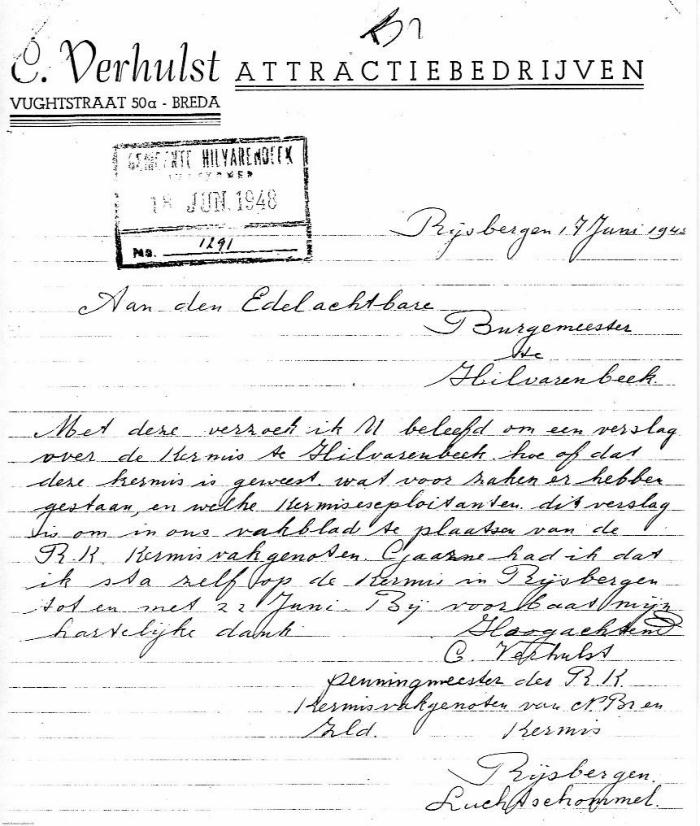 C. Verhulst ATTRACTIEBEDRIJVEN
VUGHTSTRAAT 50a - BREDA
GEMEENTE HILVARENBEEK
18 JUN. 1948
No. 1291
Rijsbergen 17 Juni 1948
Aan den Edelachtbare
Burgemeester
te
Hilvarenbeek.
Met deze verzoek ik U beleefd om een verslag
over de Kermis te Hilvarenbeek hoe of dat
deze kermis is geweest, wat voor zaken er hebben
gestaan, en welke Kermiseseploitanten. dit verslag
is om in ons vakblad te plaatsen van de
R.K. Kermisvakgenoten. Gaarne had ik dat
ik sta zelf op de Kermis in Rijsbergen
tot en met 22 Juni. Bij voorbaat mijn
hartelijke dank Hoogachtend
C. Verhulst
penningmeester der R.K.
Kermisvakgenoten van N.Br en
Zld. Kermis
Rijsbergen.
Luchtschommel.